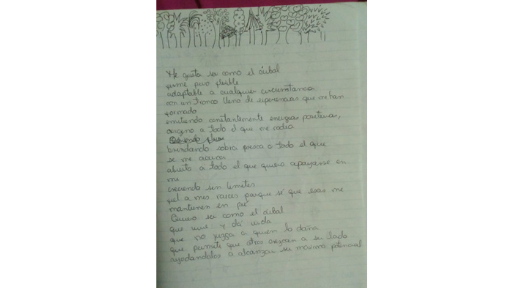 Me gusta ser como el árbol
firme pero flexible
adaptable a cualquier circunstancia
con un tronco lleno de experiencias que me han
formado
emitiendo constantemente energías positivas,
oxígeno a todo el que me rodea
brindando sobra fresca a todo el que
se me acerca
abierto a todo el que quiera apoyarse en
mi
creciendo sin limites
fiel a mis raices porque sé que esas me
mantienen en pie
Quiero ser como el árbol
que vive y da vida
que no juzga a quien lo daña
que permite que otros crezcan a su lado
ayudandolos a alcanzar su máximo potencial